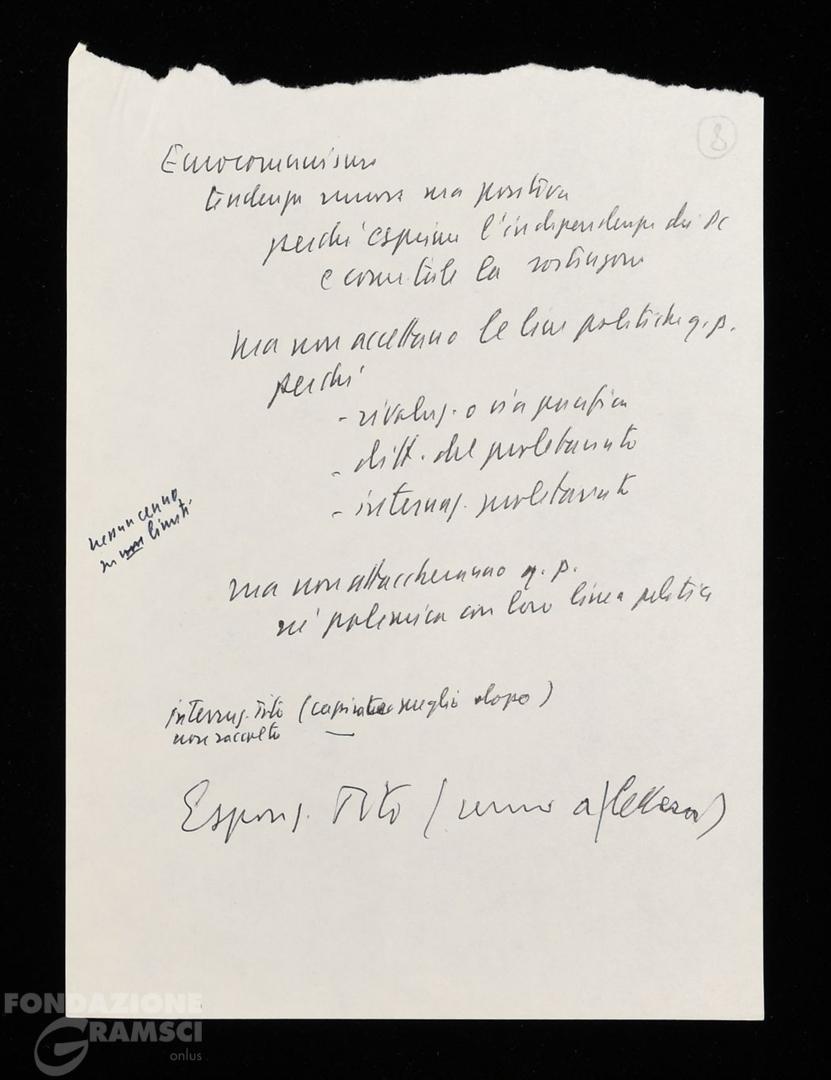 8
Eurocomunismo
tendenza nuova ma positiva
perché esprime l'indipendenza dei PC
e come tale la
ma non accettano le linee politiche q. p.
perché
- rivoluz. o via pacifica
- ditt. del proletariato
- internaz. proletariato
nessun cenno
su non
ma non attaccheranno q. p.
né polemica con loro linea politica
interruz. Tito ( meglio dopo)
non raccolto
Tito (
FONDAZIONE
GRAMSCI
onlus